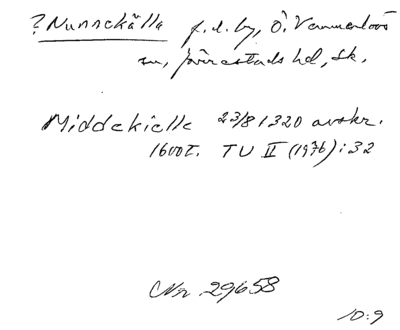 ? Nunnekälla f.d. by, Ö. Vemmerlövs
sn, Järrestads hd, Sk.
Middekielle 23/8 1320 avskr.
1600t. TU II (1976): 32
Nr 29658
10:9